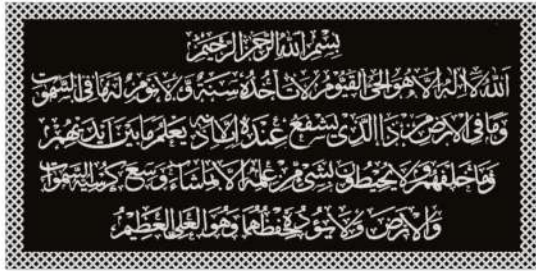 بسم الله الرحمن الرحيم
الله لا اله الا هو الحي القيوم لا تاخذه سنة ولا نوم له ما في السموت
وما في الارض من ذا الذي يشفع عنده الا باذنه يعلم ما بين ايديهم
وما خلفهم ولا يحيطون بشيء من علمه الا بما شاء وسع كرسيه السموات
والارض ولا يؤده حفظهما وهو العلي العظيم